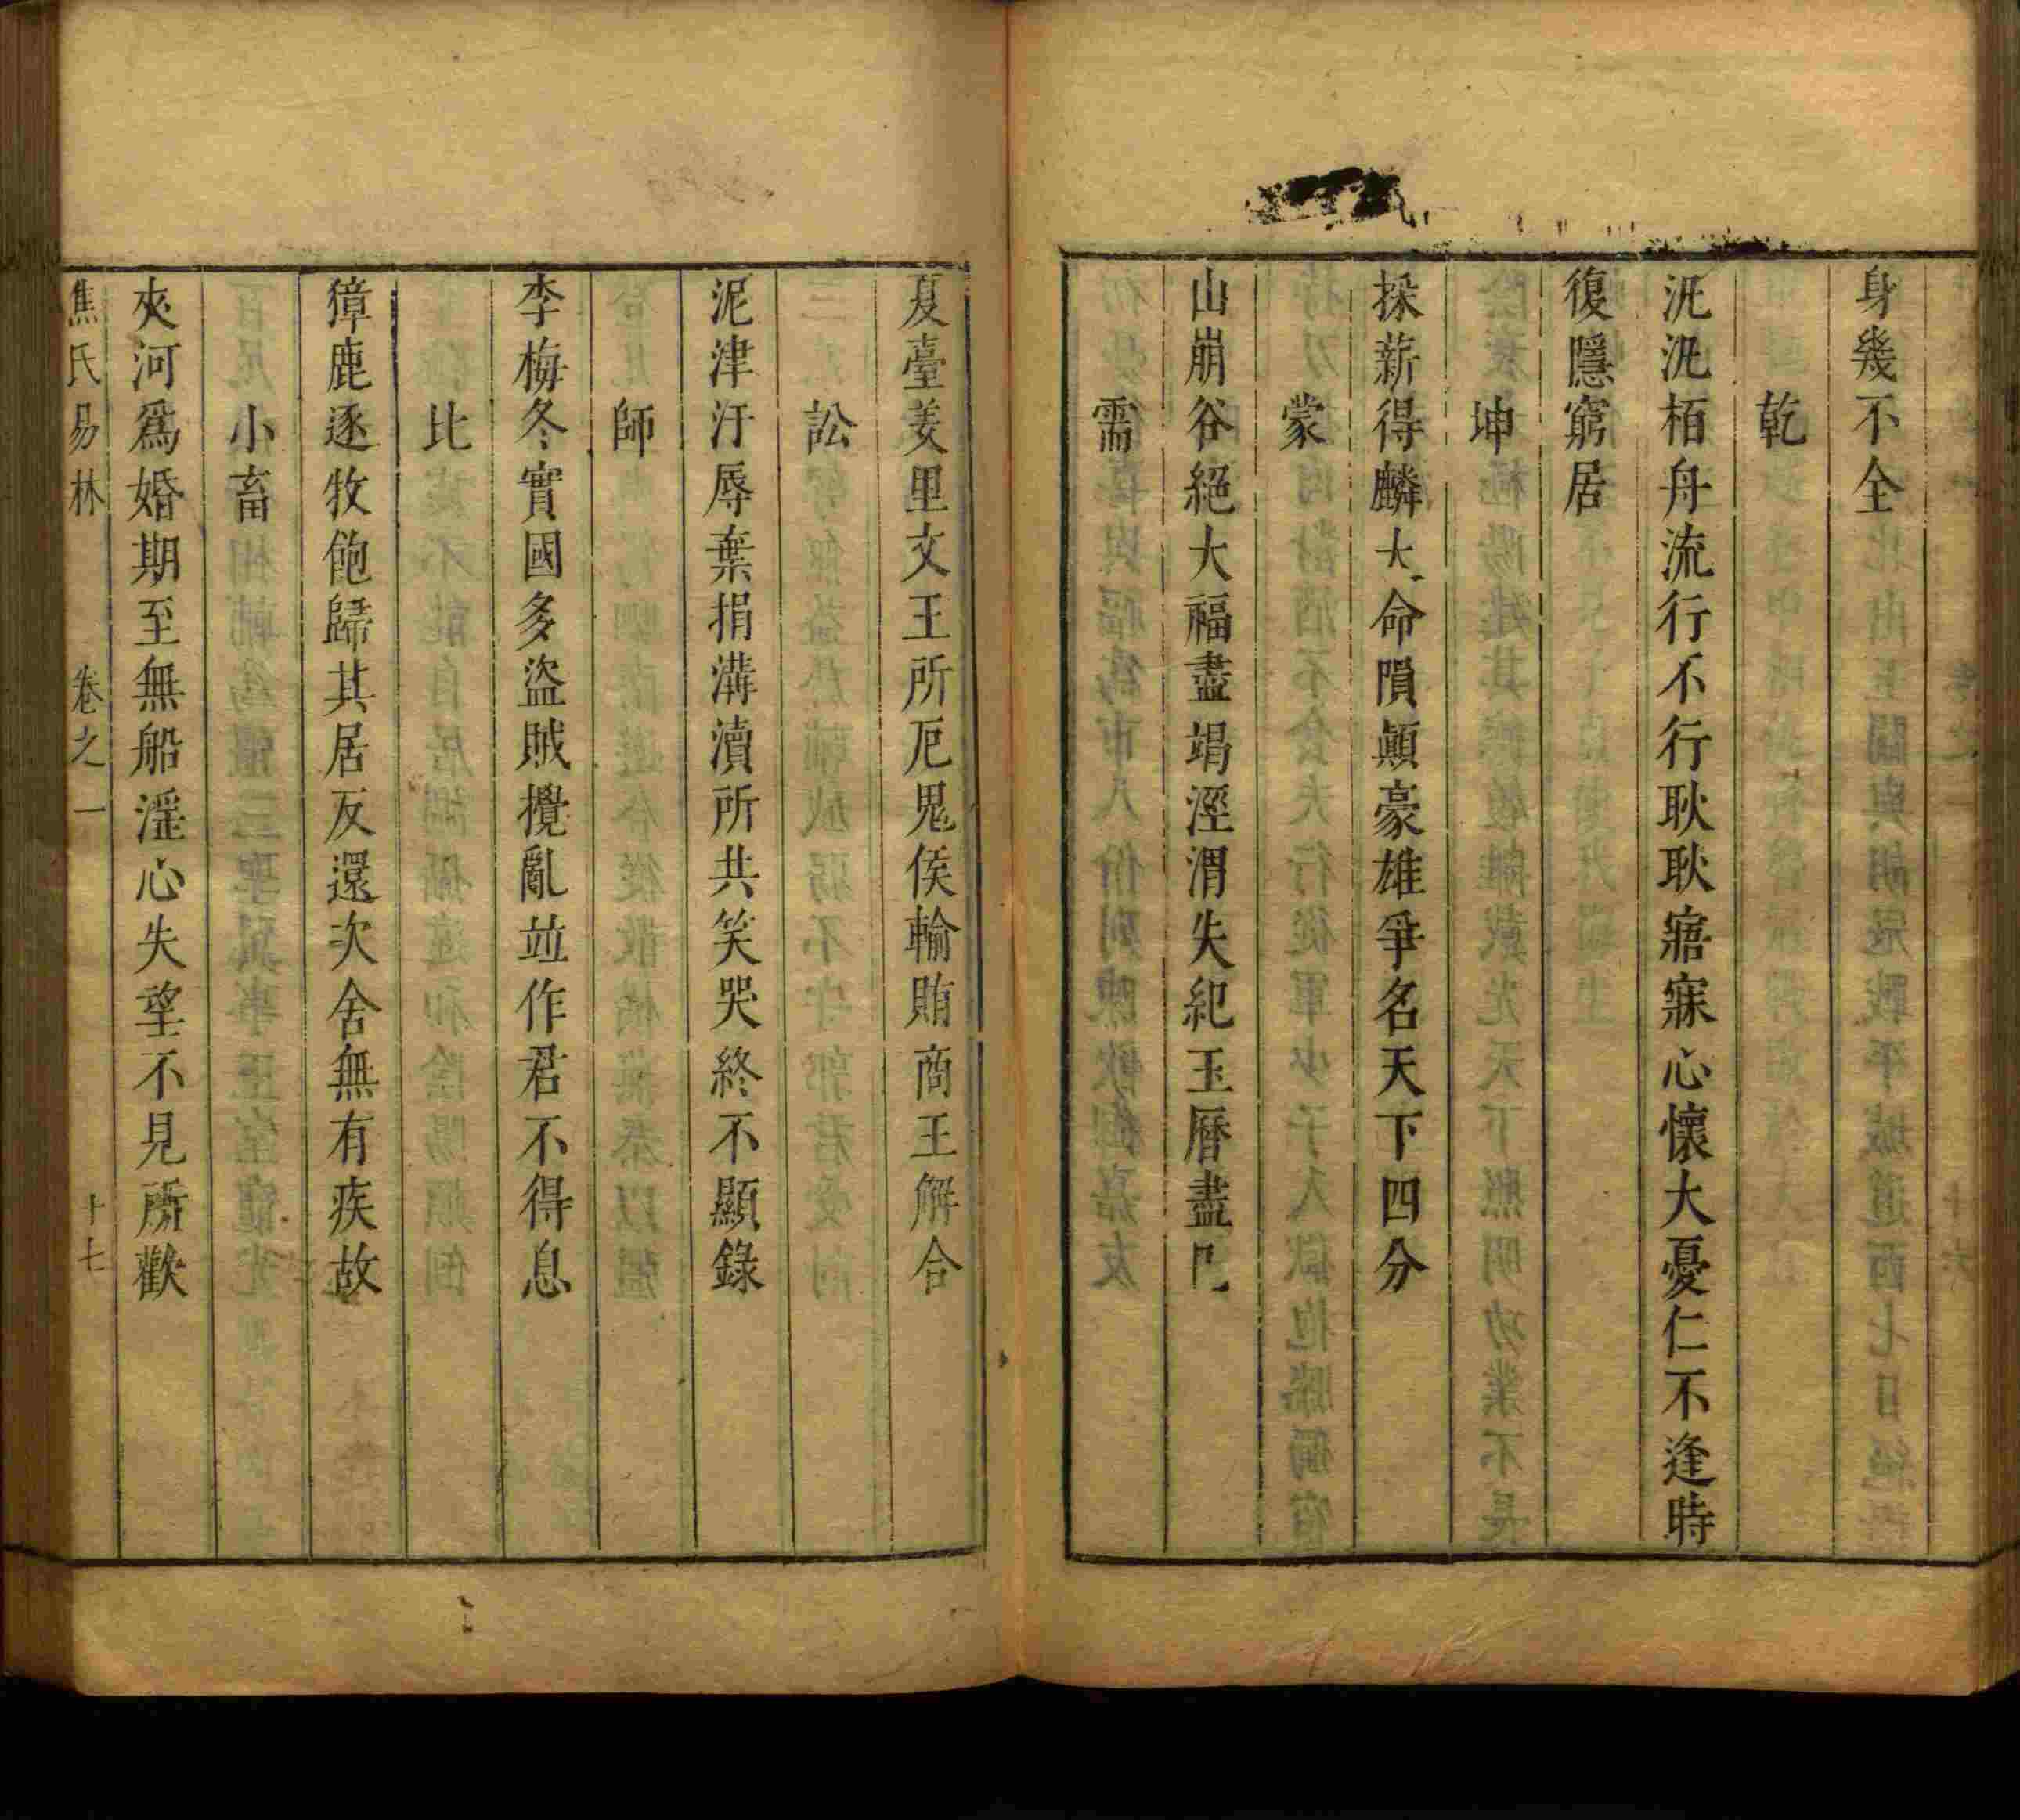 身幾不全
乾
汎汎栢舟流行不行耿耿寤寐心懷大憂仁不逢時
復隱窮居
坤
採薪得麟大命隕顛豪雄爭名天下四分
蒙
山崩谷絕大福盡竭涇渭失紀玉曆盡
需
夏臺姜里文王所厄鬼侯輸賄商王解合
訟
泥津汙辱棄捐溝瀆所共笑哭終不顯錄
師
李梅冬實國多盜賊攪亂並作君不得息
比
獐鹿逐牧飽歸其居反還次舍無有疾故
小畜
夾河爲婚期至無船淫心失望不見所歡
焦氏易林 卷之一 十七